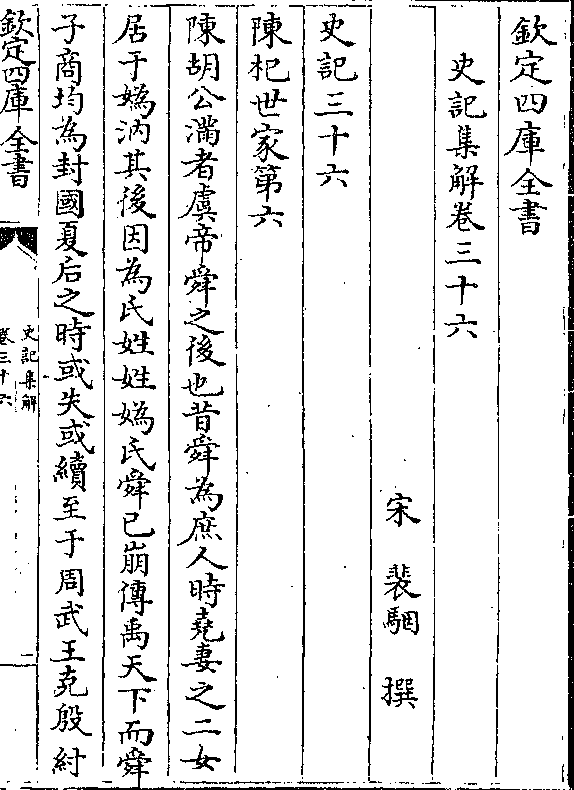 欽定四庫全書
史記集解卷三十六
宋 裴駰 撰
史記三十六
陳杞世家第六
陳胡公滿者虞帝舜之後也昔舜為庶人時堯妻之二女
居于媯汭其後因為氏姓姓媯氏舜已崩傳禹天下而舜
子商均為封國夏后之時或失或續至于周武王克殷紂
欽定四庫全書
史記集解
卷三十六
一